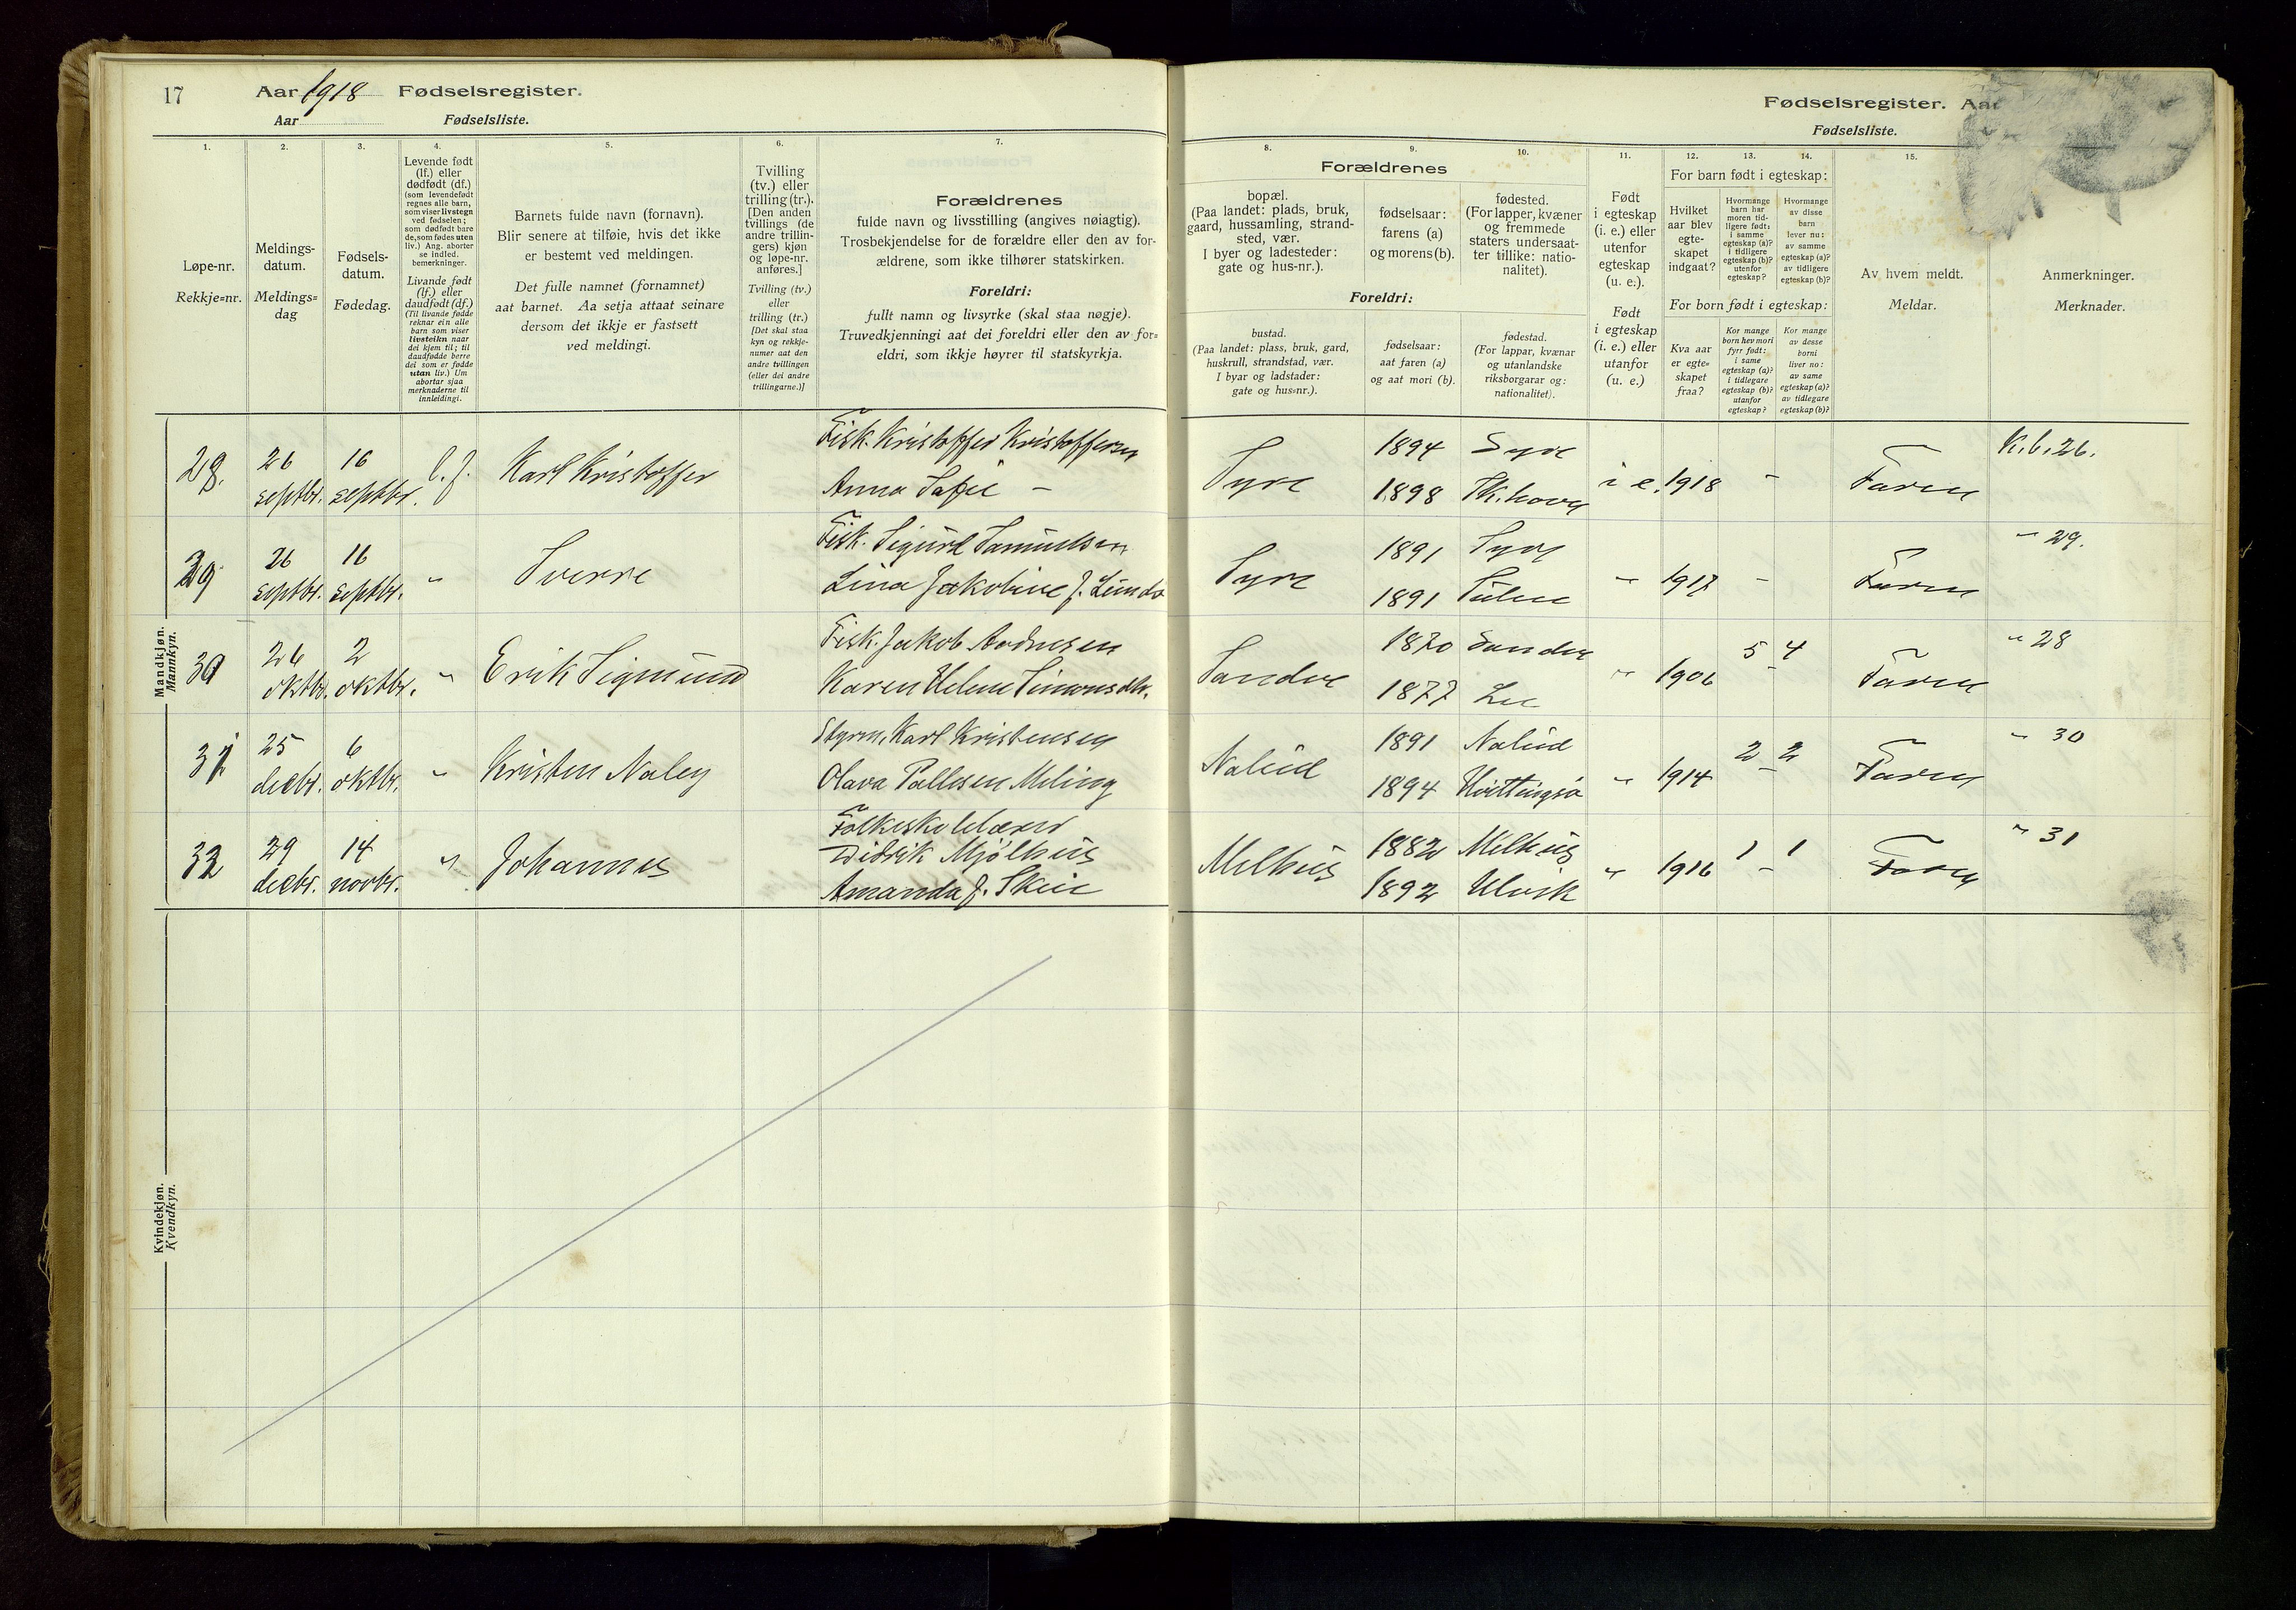 17
Aar 1918 Fødselsregister.
Aar Fødselsliste.
1.
2.
3.
4.
5.
6.
7.
Løpe-nr.
Rekkje=nr.
Meldings-
datum.
Meldings=
dag
Fødsels-
datum.
Fødedag.
Levende født
(lf.) eller
dødfødt (df.)
(som levendefødt
regnes alle barn,
som viser livstegn
ved fødselen;
som dødfødt bare
de, som fødes uten
liv.) Ang. aborter
se indled.
bemerkninger.
Livande født
(lf.) eller
daudfødt (df.)
(Til livande fødde
reknar ein alle
barn som viser
livsteikn naar
dei kjem til; til
daudfødde berre
dei som er fødde
utan liv.) Um
abortar sjaa
merknaderne til
innleidingi.
Barnets fulde navn (fornavn).
Blir senere at tilføie, hvis det ikke
er bestemt ved meldingen.
Det fulle namnet (fornamnet)
aat barnet. Aa setja attaat seinare
dersom det ikkje er fastsett
ved meldingi.
Tvilling
(tv.) eller
trilling (tr.).
[Den anden
tvillings (de
andre trillin-
gers) kjøn
og løpe-nr.
anføres.]
Tvilling (tv.)
eller
trilling (tr.)
[Det skal staa
kyn og rekkje-
numer aat den
andre tvillingen
(eller dei andre
trillingarne.)]
Forældrenes
fulde navn og livsstilling (angives nøiagtig).
Trosbekjendelse for de forældre eller den av for-
ældrene, som ikke tilhører statskirken.
Foreldri:
fullt namn og livsyrke (skal staa nøgje).
Truvedkjenningi aat dei foreldri eller den av for=
eldri, som ikkje høyrer til statskyrkja.
Mandkjøn.
Mannkyn.
29. 26 septbr. 16 septbr. l.f. Karl Kristoffer
Fisk. Kristoffer Kristoffersen
Anna Sofie –
29 26 septbr. 16 septbr. " Sverre
Fisk. Sigurd Samuelsen
Lina Jakobine J. Lunde
30 26 oktbr. 2 oktbr. " Erik Sigmund
Fisk. Jakob Andresen
Karen Helene Simonsdtr.
31 25 decbr. 6 oktbr. " Kristen Naley
Styrm. Karl Kristensen
Olava Pallesen Meling
32 29 decbr. 14 novbr. " Johannes
Folkeskolelærer
Didrik Mjølhus
Amanda J. Skeie
Kvindekjøn.
Kvendkyn.
Fødselsregister. Aar
Fødselsliste.
8.
9.
10.
11.
12.
13.
14.
15.
Forældrenes
bopæl.
(Paa landet: plads, bruk,
gaard, hussamling, strand-
sted, vær.
I byer og ladesteder:
gate og hus-nr.).
fødselsaar:
farens (a)
og morens (b).
fødested.
(For lapper, kvæner
og fremmede
staters undersaat-
ter tillike: natio-
nalitet).
Foreldri:
bustad.
(Paa landet: plass, bruk, gard,
huskrull, strandstad, vær.
I byar og ladstader:
gate og hus=nr.).
fødselsaar:
aat faren (a)
og aat mori (b).
fødestad.
(For lappar, kvænar
og utanlandske
riksborgarar og:
nationalitet).
Født
i egteskap
(i. e.) eller
utenfor
egteskap
(u. e.).
Født
i egteskap
(i. e.) eller
utanfor
(u. e.)
For barn født i egteskap:
Hvilket
aar blev
egte-
skapet
indgaat?
Hvormange
barn har
moren tid-
ligere født:
i samme
egteskap (a)?
i tidligere
egteskap (b)?
utenfor
egteskap?
Hvormange
av disse
barn
lever nu:
av samme
egteskap (a)?
av tidligere
egteskap (b)?
For born født i egteskap:
Kva aar
er egte=
skapet
fraa?
Kor mange
born hev mori
fyrr født:
i same
egteskap (a)?
i tidlegare
egteskap (b)?
utanfor
egteskap?
Kor mange
av desse
borni
liver no:
av same
egteskap (a)?
av tidlegare
egteskap (b)?
Av hvem meldt.
Meldar.
Anmerkninger.
Merknader.
Syre 1894 Syre i e. 1918 – Faren K.b. 26.
1898 Sk.havn
Syre 1891 Syre " 1917 – Faren " 29.
1891
Sandve 1870 Sandve " 1906 5 – 4 Faren " 28
1877
Nalud 1891 Nalud " 1914 2 – 2 Faren " 30
1894 Kvittingsø
Melhus 1882 Melhus " 1916 1 – 1 Faren " 31
1892 Ulvik